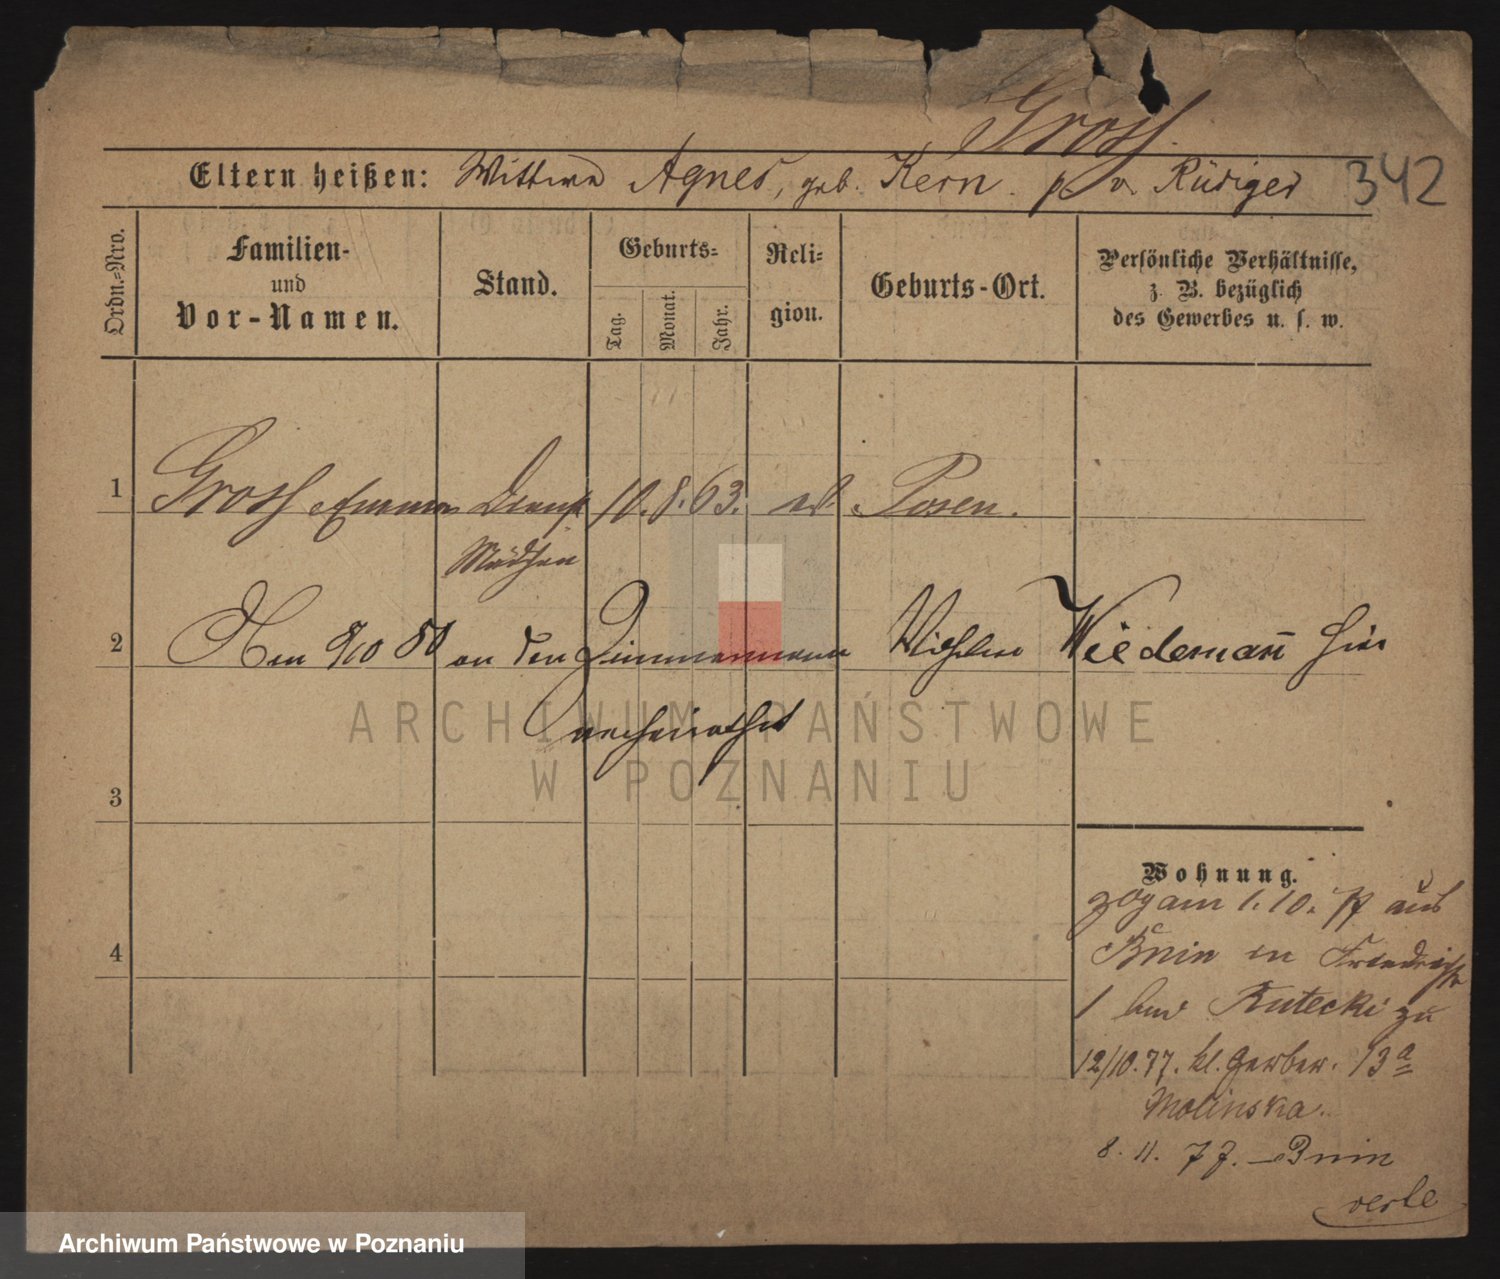 Grosh.
Eltern heißen: Wittwe Agnes, geb. Kern. p. v. Rüdiger 342
Ordn.-Nro.
Familien-
und
Vor-Namen.
Stand.
Geburts-
Tag.
Monat.
Jahr.
Reli-
gion.
Geburts-Ort.
Persönliche Verhältnisse,
z. B. bezüglich
des Gewerbes u. s. w.
1 Grosh Emma Dienst 10. 8. 63. Posen.
Mädchen
2 an den Zimmermann Wilhelm Wiedemañ hier
verheirathet
3
4
Wohnung.
zog am 1. 10. 77 aus
Bnin in Friedrichstr
1 bei Rutecki zu
12/10. 77. kl. Gerber. 13a
Molinska.
8. 11. 77. Bnin
ARCHIWUM PAŃSTWOWE
W POZNANIU
Archiwum Państwowe w Poznaniu